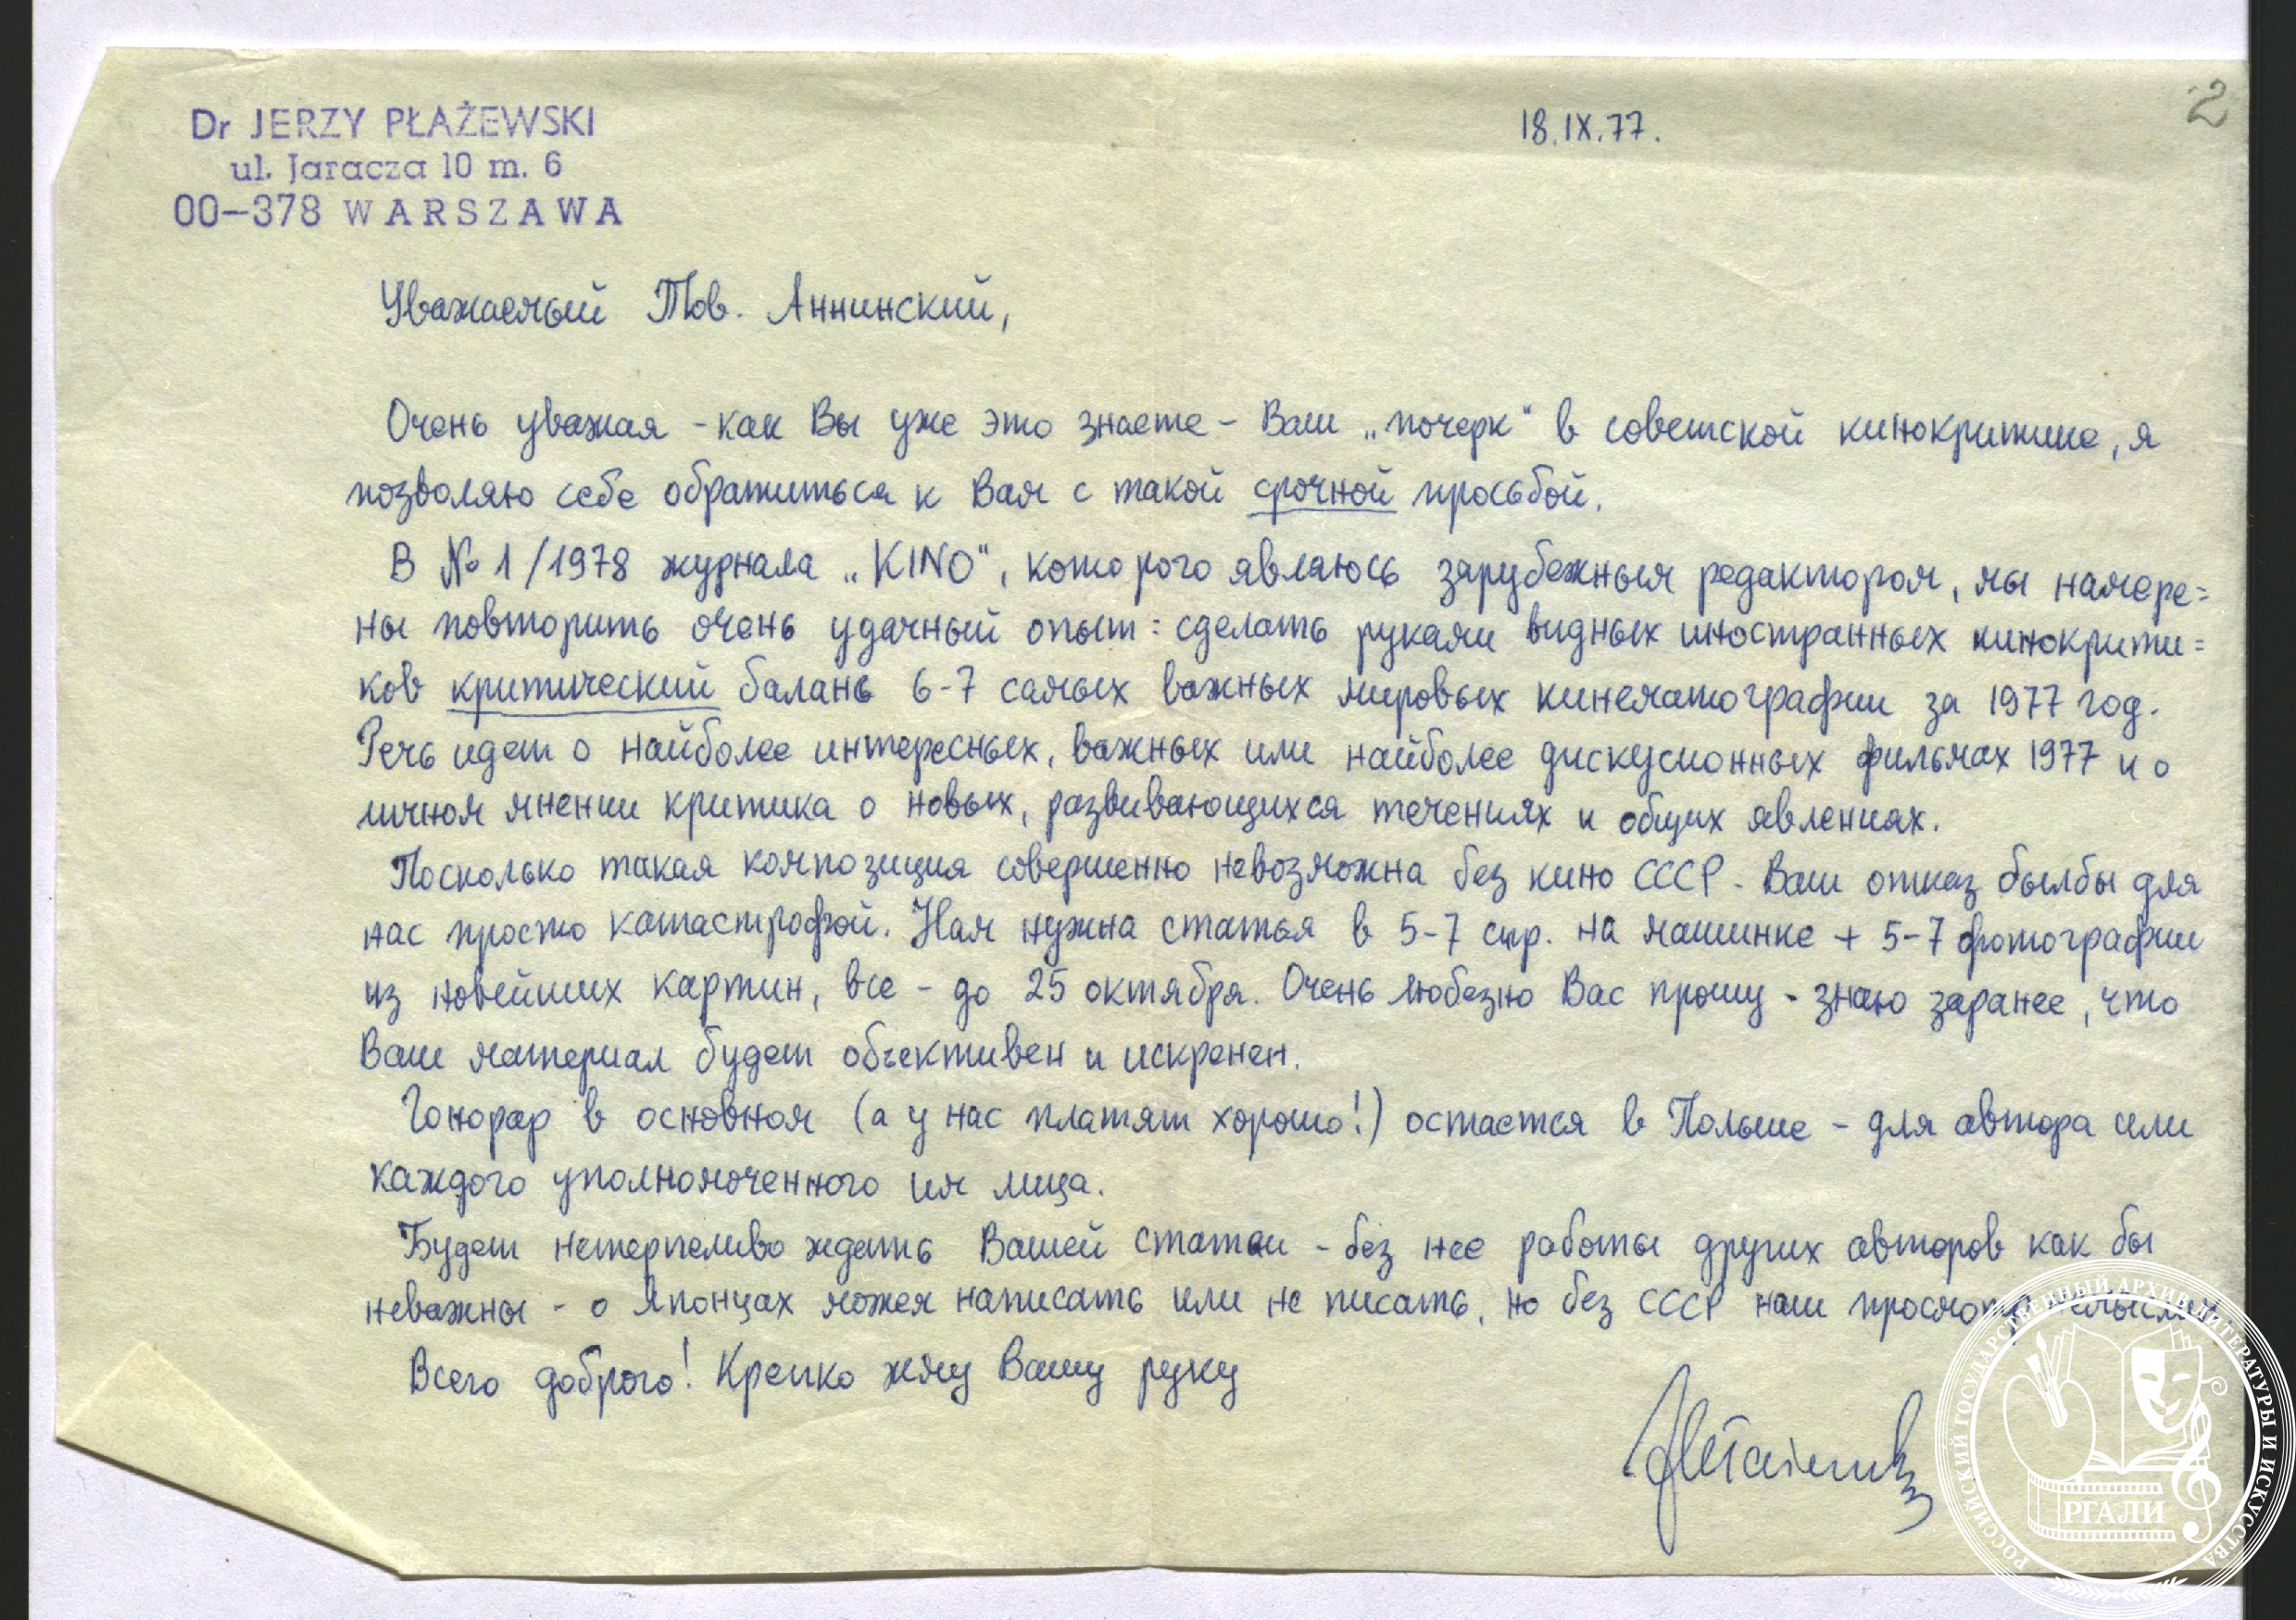 Dr JERZY PŁAŻEWSKI
ul. Jaracza 10 m. 6
00-378 WARSZAWA
18.IX.77.
2
Уважаемый Тов. Аннинский,
Очень уважая - как Вы уже это знаете - Ваш „почерк" в советской кинокритике, я
позволяю себе обратиться к Вам с такой срочной просьбой.
В № 1/1978 журнала „KINO", которого являюсь зарубежным редактором, мы намере=
ны повторить очень удачный опыт: сделать руками видных иностранных кинокрити=
ков критический баланс 6-7 самых важных мировых кинематографии за 1977 год.
Речь идет о найболее интересных, важных или найболее дискусионных фильмах 1977 и о
личном мнении критика о новых, развивающихся течениях и общих явлениях.
Посколько такая композиция совершенно невозможна без кино СССР - Ваш отказ былбы для
нас просто катастрофой. Нам нужна статья в 5-7 стр. на машинке + 5-7 фотографии
из новейших картин, все - до 25 октября. Очень любезно Вас прошу - знаю заранее, что
Ваш материал будет объективен и искренен.
Гонорар в основном (а у нас платят хорошо!) остается в Польше - для автора или
каждого уполномоченного им лица.
Будем нетерпеливо ждать Вашей статьи - без нее работы других авторов как бы
неважны - о Японцах можем написать или не писать, но без СССР наш
Всего доброго! Крепко жму Вашу руку
РОССИЙСКИЙ ГОСУДАРСТВЕННЫЙ АРХИВ ЛИТЕРАТУРЫ И ИСКУССТВА
РГАЛИ